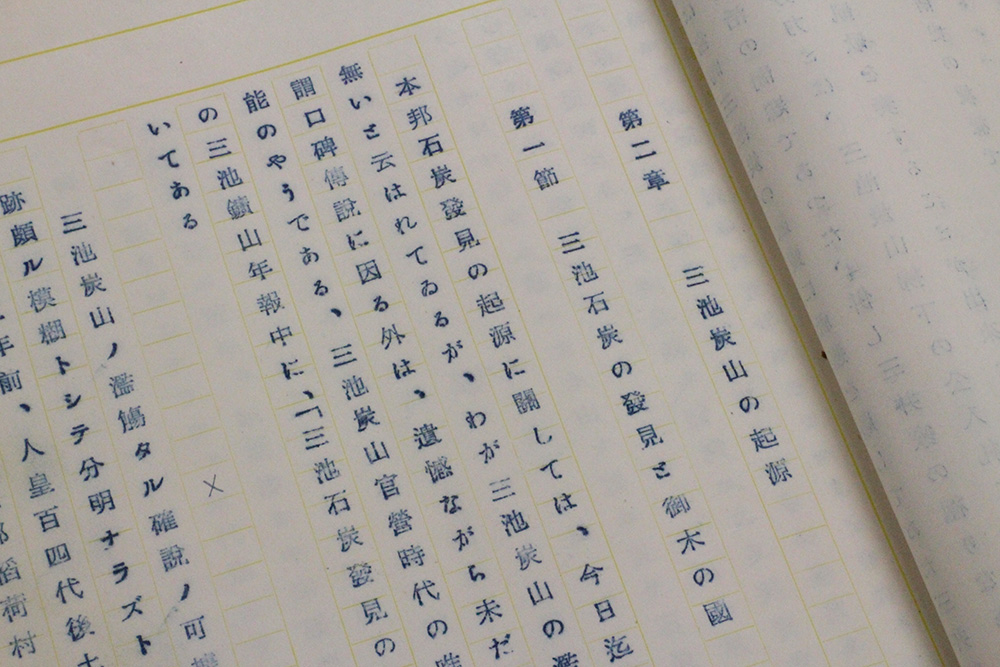 第二章　三池炭山の起源
第一節　三池石炭の發見と御木の國
本邦石炭發見の起源に關しては、今日迄
無いと云はれてゐるが、わが三池炭山の濫
謂口碑傳說に因る外は、遺憾ながら未だ
能のやうである、三池炭山官營時代の唯
の三池鑛山年報中に、「三池石炭發見の
いてある
三池炭山ノ濫觴タル確說ノ可
跡頗ル模糊トシテ分明ナラズト
年前、人皇百四代後土
稻荷村